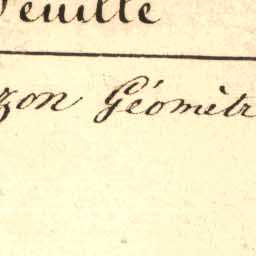 Feuille
zon Géomètr